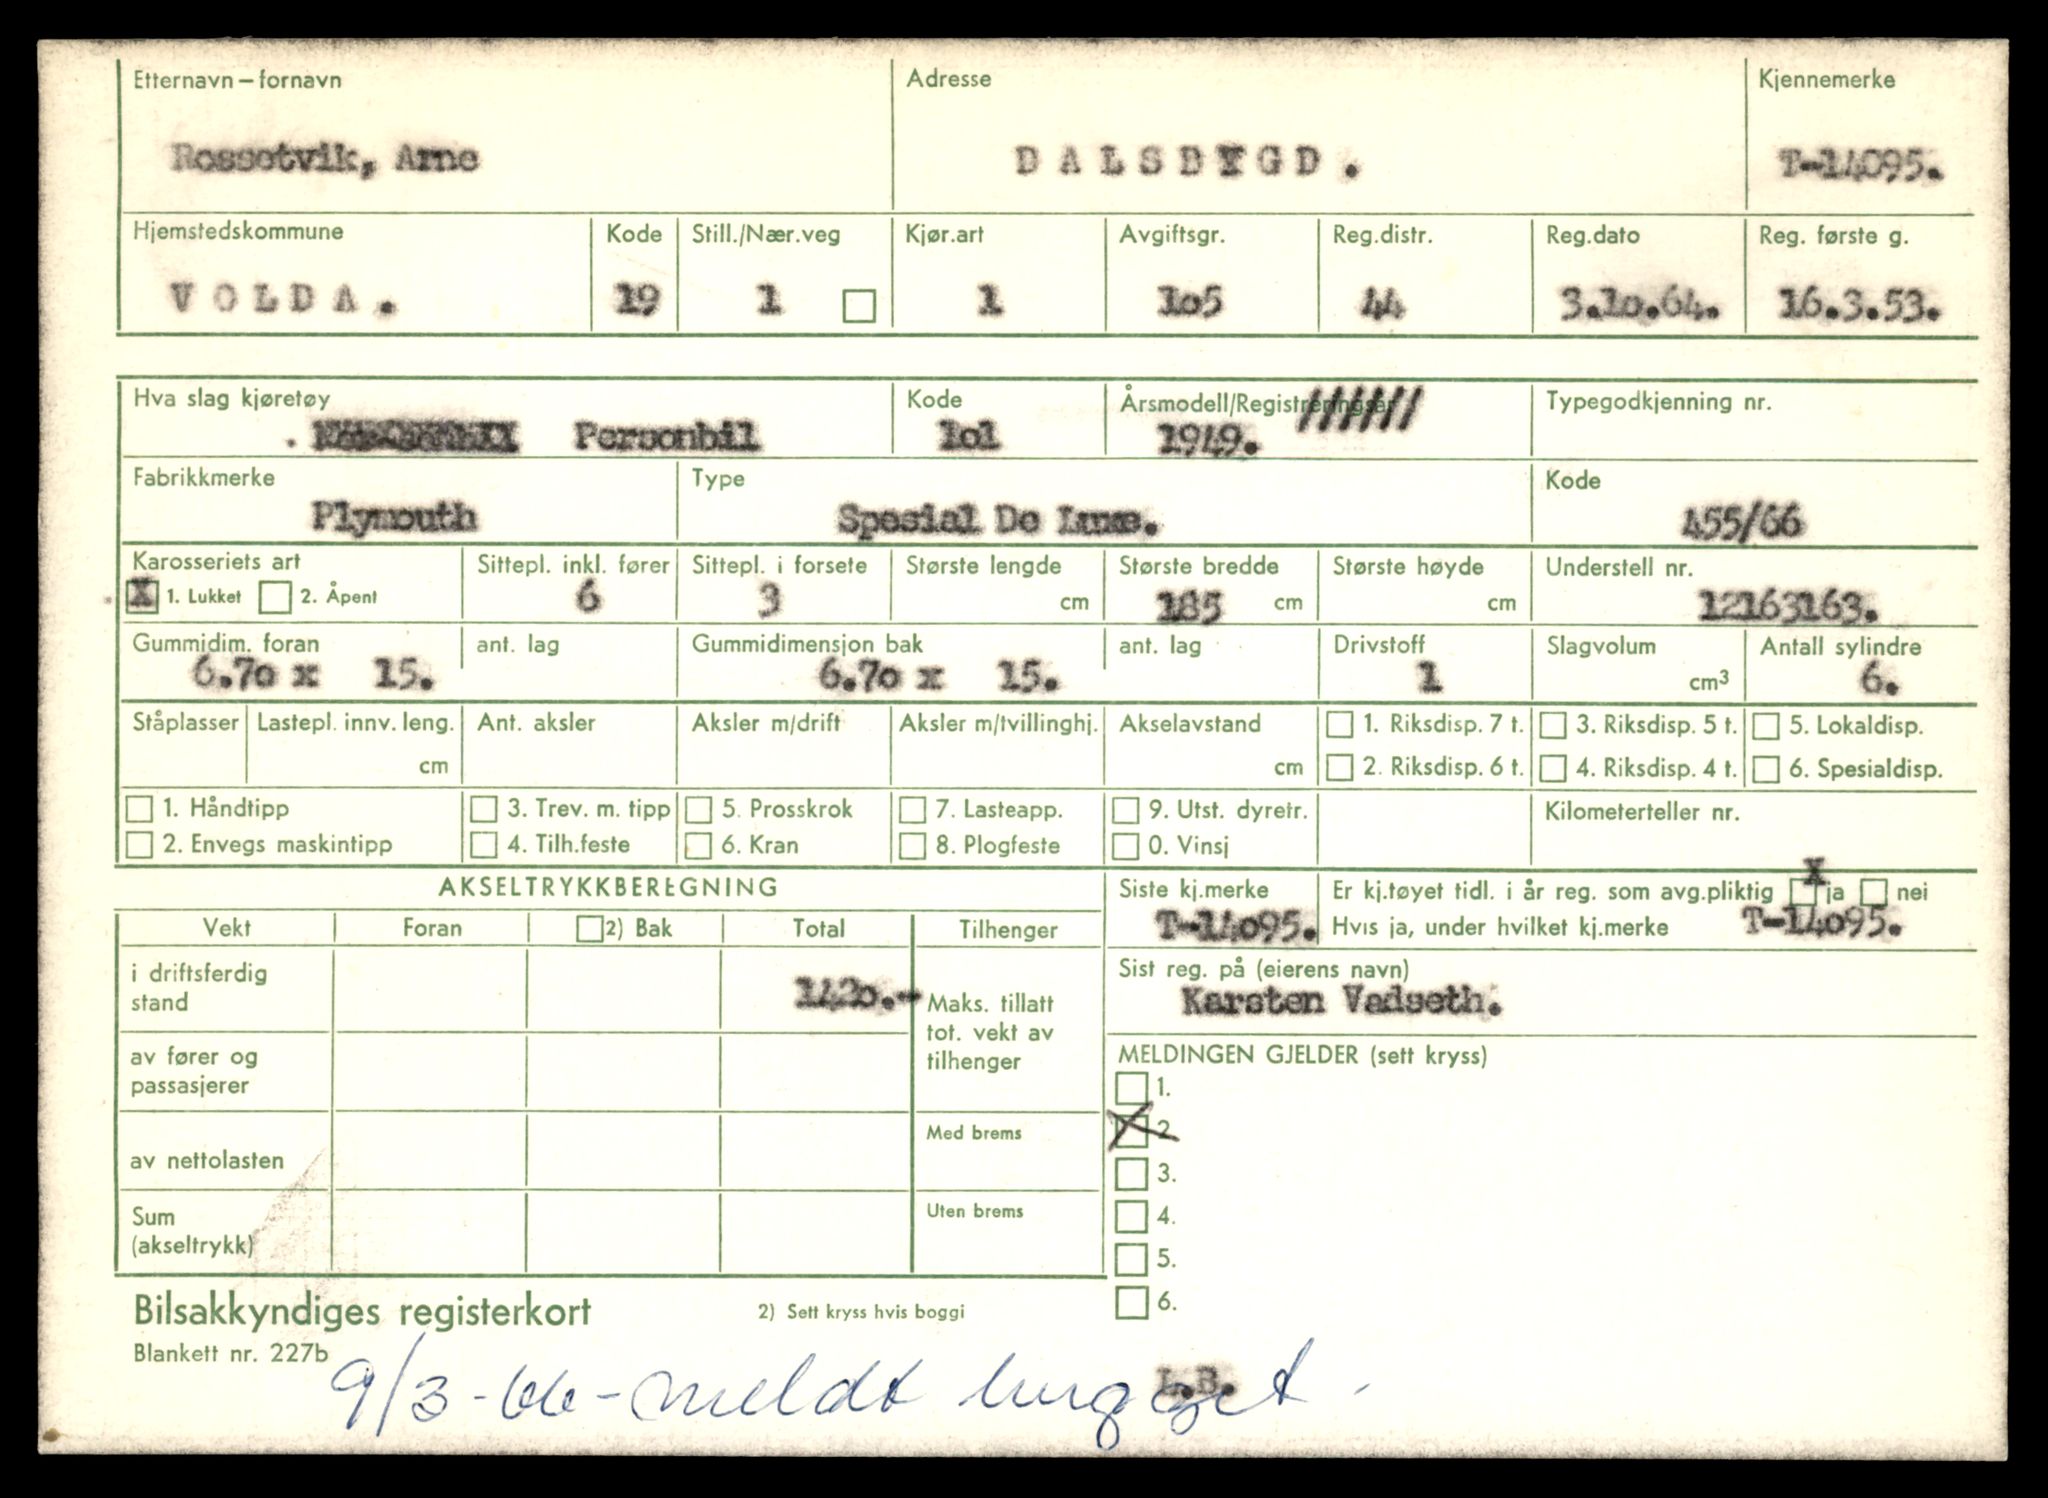 Etternavn – fornavn Adresse Kjennemerke
Rossetvik, Arne DALSBYGD. T-14095.
Hjemstedskommune Kode Still./Nær.veg Kjør.art Avgiftsgr. Reg.distr. Reg.dato Reg. første g.
VOLDA. 19 1 1 1o5 44 3.1o.64. 16.3.53.
Hva slag kjøretøy Kode Årsmodell/Registreringsår Typegodkjenning nr.
Personbil 1o1 1949. //////
Fabrikkmerke Type Kode
Plymouth Spesial De Luxe. 455/66
Karosseriets art Sittepl. inkl. fører Sittepl. i forsete Største lengde Største bredde Største høyde Understell nr.
X 1. Lukket 2. Åpent 6 3 cm 185 cm cm 12163163.
Gummidim. foran ant. lag Gummidimensjon bak ant. lag Drivstoff Slagvolum Antall sylindre
6.7o x 15. 6.7o x 15. 1 cm3 6.
Ståplasser Lastepl. innv. leng. Ant. aksler Aksler m/drift Aksler m/tvillinghj. Akselavstand 1. Riksdisp. 7 t. 3. Riksdisp. 5 t. 5. Lokaldisp.
cm cm 2. Riksdisp. 6 t. 4. Riksdisp. 4 t. 6. Spesialdisp.
1. Håndtipp 3. Trev. m. tipp 5. Prosskrok 7. Lasteapp. 9. Utst. dyretr. Kilometerteller nr.
2. Envegs maskintipp 4. Tilh.feste 6. Kran 8. Plogfeste 0. Vinsj
AKSELTRYKKBEREGNING Siste kj.merke Er kj.tøyet tidl. i år reg. som avg.pliktig X ja nei
T-14o95. Hvis ja, under hvilket kj.merke T-14o95.
Vekt Foran 2) Bak Total Tilhenger
i driftsferdig stand 142o.- Maks. tillatt tot. vekt av tilhenger
Sist reg. på (eierens navn)
Karsten Vadseth.
av fører og passasjerer
MELDINGEN GJELDER (sett kryss)
1.
X 2
3.
4.
5.
6.
Med brems
av nettolasten
Uten brems
Sum (akseltrykk)
Bilsakkyndiges registerkort 2) Sett kryss hvis boggi
Blankett nr. 227b
L.B.
9/3-66 - meldt hugget -